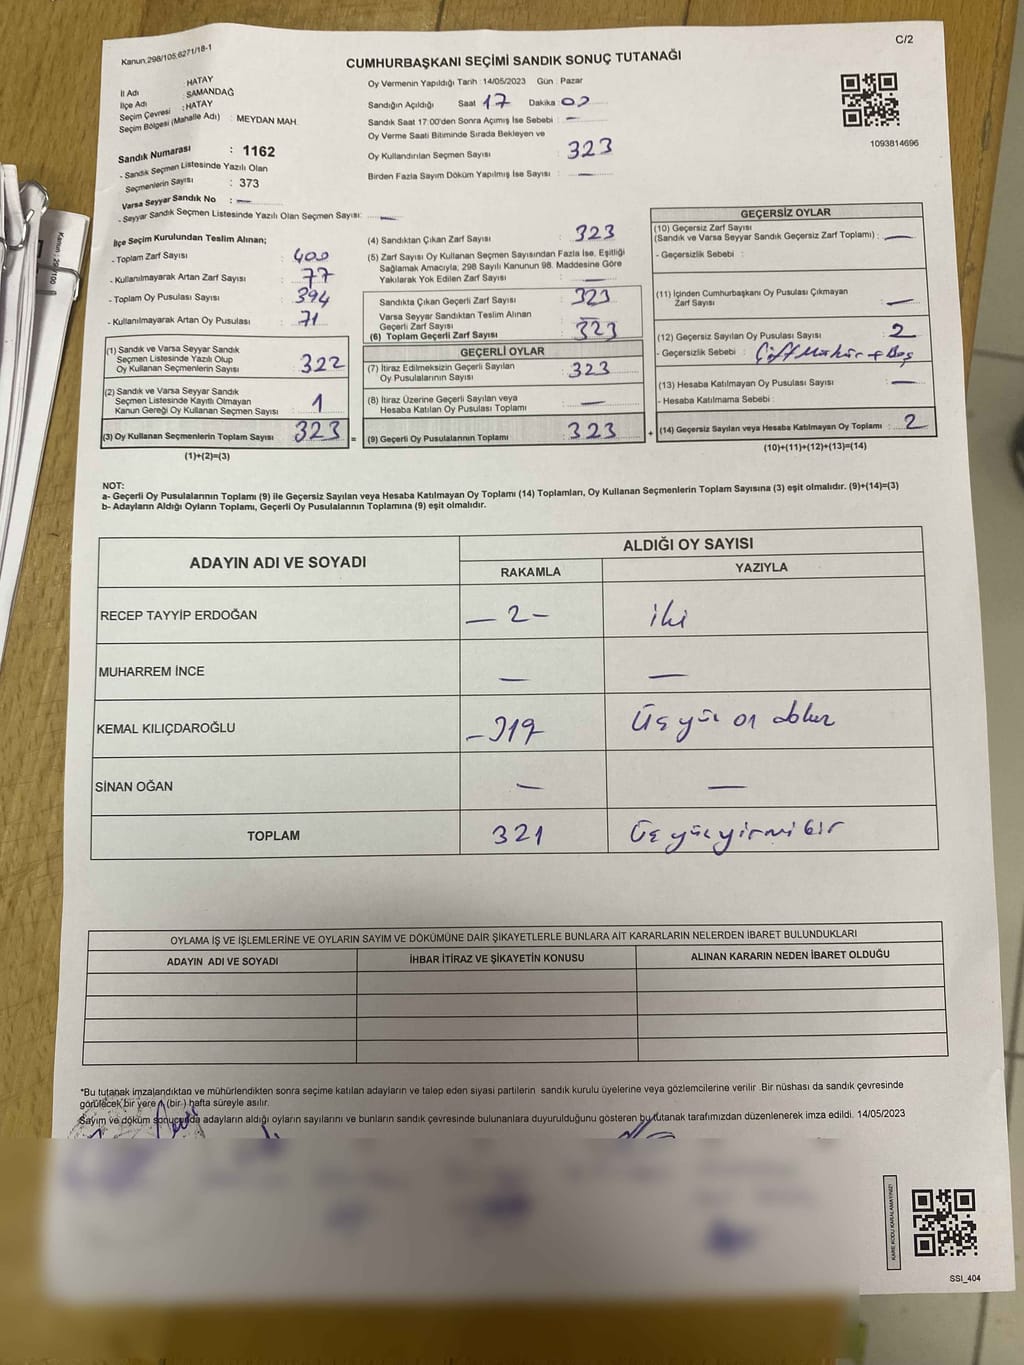 Kanun.298/105;6271/18-1
C/2
CUMHURBAŞKANI SEÇİMİ SANDIK SONUÇ TUTANAĞI
İl Adı : HATAY
İlçe Adı : SAMANDAĞ
Seçim Çevresi : HATAY
Seçim Bölgesi (Mahalle Adı) : MEYDAN MAH.
Sandık Numarası : 1162
- Sandık Seçmen Listesinde Yazılı Olan
Seçmenlerin Sayısı : 373
Varsa Seyyar Sandık No : —
- Seyyar Sandık Seçmen Listesinde Yazılı Olan Seçmen Sayısı: —
Oy Vermenin Yapıldığı Tarih : 14/05/2023 Gün : Pazar
Sandığın Açıldığı Saat 17 Dakika : 00
Sandık Saat 17:00'den Sonra Açımış İse Sebebi : —
Oy Verme Saati Bitiminde Sırada Bekleyen ve
Oy Kullandırılan Seçmen Sayısı : 323
Birden Fazla Sayım Döküm Yapılmış İse Sayısı : —
1093814696
İlçe Seçim Kurulundan Teslim Alınan;
- Toplam Zarf Sayısı : 400
- Kullanılmayarak Artan Zarf Sayısı : 77
- Toplam Oy Pusulası Sayısı : 394
- Kullanılmayarak Artan Oy Pusulası : 71
(1) Sandık ve Varsa Seyyar Sandık
Seçmen Listesinde Yazılı Olup
Oy Kullanan Seçmenlerin Sayısı : 322
(2) Sandık ve Varsa Seyyar Sandık
Seçmen Listesinde Kayıtlı Olmayan
Kanun Gereği Oy Kullanan Seçmen Sayısı : 1
(3) Oy Kullanan Seçmenlerin Toplam Sayısı : 323 =
(1)+(2)=(3)
(4) Sandıktan Çıkan Zarf Sayısı : 323
(5) Zarf Sayısı Oy Kullanan Seçmen Sayısından Fazla İse, Eşitliği
Sağlamak Amacıyla, 298 Sayılı Kanunun 98. Maddesine Göre
Yakılarak Yok Edilen Zarf Sayısı : —
Sandıkta Çıkan Geçerli Zarf Sayısı : 323
Varsa Seyyar Sandıktan Teslim Alınan
Geçerli Zarf Sayısı : —
(6) Toplam Geçerli Zarf Sayısı : 323
GEÇERLİ OYLAR
(7) İtiraz Edilmeksizin Geçerli Sayılan
Oy Pusulalarının Sayısı : 323
(8) İtiraz Üzerine Geçerli Sayılan veya
Hesaba Katılan Oy Pusulası Toplamı : —
(9) Geçerli Oy Pusulalarının Toplamı : 323 +
GEÇERSİZ OYLAR
(10) Geçersiz Zarf Sayısı
(Sandık ve Varsa Seyyar Sandık Geçersiz Zarf Toplamı) : —
- Geçersizlik Sebebi :
(11) İçinden Cumhurbaşkanı Oy Pusulası Çıkmayan
Zarf Sayısı : —
(12) Geçersiz Sayılan Oy Pusulası Sayısı : 2
- Geçersizlik Sebebi : Çift Mühür + Boş
(13) Hesaba Katılmayan Oy Pusulası Sayısı : —
- Hesaba Katılmama Sebebi :
(14) Geçersiz Sayılan veya Hesaba Katılmayan Oy Toplamı : 2
(10)+(11)+(12)+(13)=(14)
NOT:
a- Geçerli Oy Pusulalarının Toplamı (9) ile Geçersiz Sayılan veya Hesaba Katılmayan Oy Toplamı (14) Toplamları, Oy Kullanan Seçmenlerin Toplam Sayısına (3) eşit olmalıdır. (9)+(14)=(3)
b- Adayların Aldığı Oyların Toplamı, Geçerli Oy Pusulalarının Toplamına (9) eşit olmalıdır.
ADAYIN ADI VE SOYADI ALDIĞI OY SAYISI
RAKAMLA YAZIYLA
RECEP TAYYİP ERDOĞAN — 2 — iki
MUHARREM İNCE — —
KEMAL KILIÇDAROĞLU — 319 Üç yüz on dokuz
SİNAN OĞAN — —
TOPLAM 321 Üç yüz yirmi bir
OYLAMA İŞ VE İŞLEMLERİNE VE OYLARIN SAYIM VE DÖKÜMÜNE DAİR ŞİKAYETLERLE BUNLARA AİT KARARLARIN NELERDEN İBARET BULUNDUKLARI
ADAYIN ADI VE SOYADI İHBAR İTİRAZ VE ŞİKAYETİN KONUSU ALINAN KARARIN NEDEN İBARET OLDUĞU
*Bu tutanak imzalandıktan ve mühürlendikten sonra seçime katılan adayların ve talep eden siyasi partilerin sandık kurulu üyelerine veya gözlemcilerine verilir .Bir nüshası da sandık çevresinde
görülecek bir yere 1 (bir ) hafta süreyle asılır.
Sayım ve döküm sonucunda adayların aldığı oyların sayılarını ve bunların sandık çevresinde bulunanlara duyurulduğunu gösteren bu tutanak tarafımızdan düzenlenerek imza edildi. 14/05/2023
KARE KODU KARALAMAYINIZ!
SSI_404